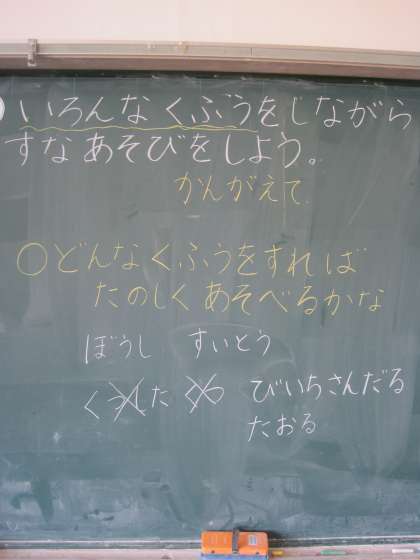 いろんなくふうをしながら
すなあそびをしよう。
かんがえて
○どんなくふうをすれば
たのしくあそべるかな
ぼうし すいとう
びいちさんだる
たおる